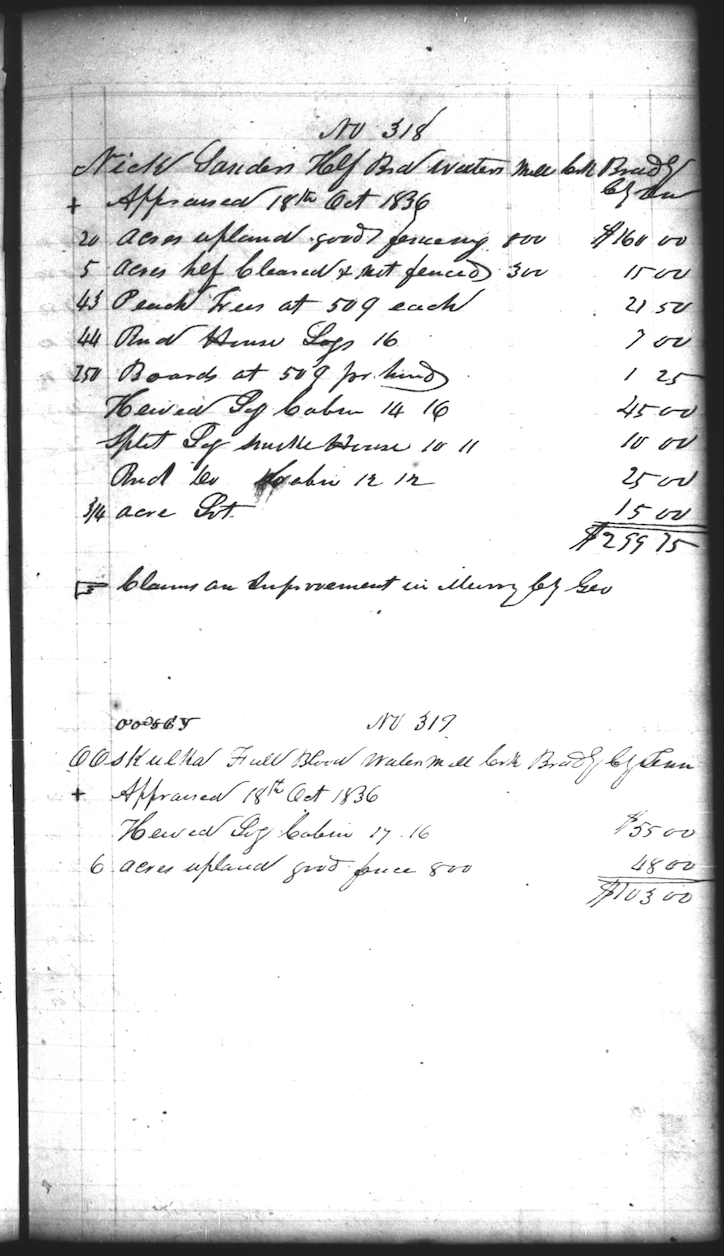 No 318
Nick Sanders Hlf Brd Waters Mill Crk Bradly
Cy Tenn
+ Appraised 18th Oct 1836
20 acres upland good fencing 800 $160 00
5 acres hlf Cleared & not fenced 300 15 00
43 Peach Trees at 50¢ each 21 50
44 Rnd House Logs 16 7 00
250 Boards at 50¢ pr hund 1 25
Hewed Log Cabin 14 16 45 00
Split Log Smoke House 10 11 10 00
Rnd Do Cabin 12 12 25 00
3/4 acre Lot 15 00
$299 75
☞ Claims an Improvement in Murry Cy Geo
No 319
OOskulka Full Blood Waters Mill Crk Bradly Cy Tenn
+ Appraised 18th Oct 1836
Hewed Log Cabin 17 16 $55 00
6 acres upland good fence 800 48 00
$103 00